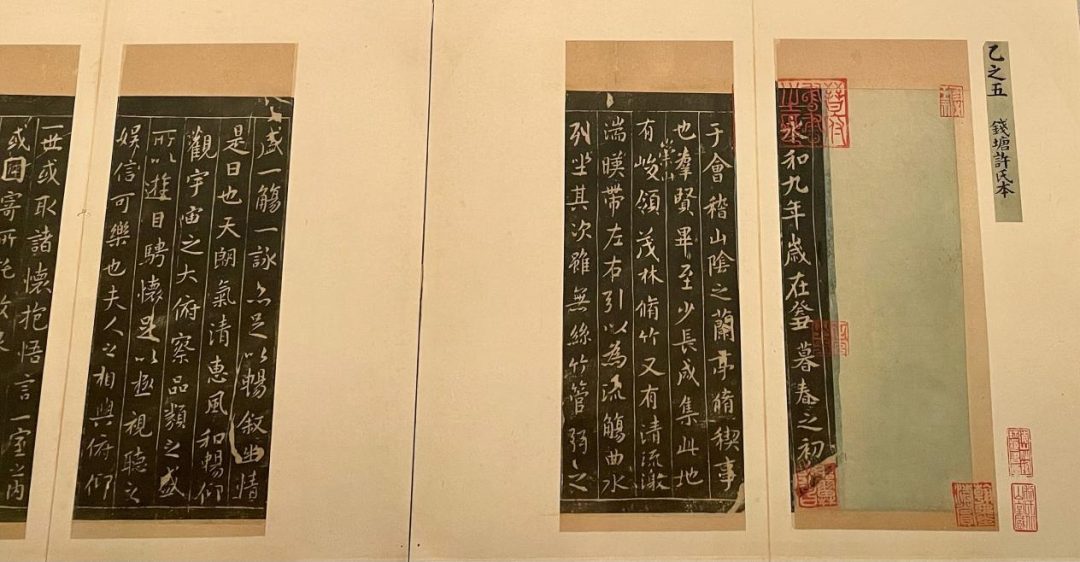 乙之五 錢塘許氏本
永和九年歲在癸丑暮春之初
于會稽山陰之蘭亭脩禊事
也羣賢畢至少長咸集此地
崇山
有峻領茂林脩竹又有清流激
湍暎帶左右引以為流觴曲水
列坐其次雖無絲竹管弦之
盛一觴一詠亦足以暢叙幽情
是日也天朗氣清惠風和暢仰
觀宇宙之大俯察品類之盛
所以遊目騁懷足以極視聽之
娛信可樂也夫人之相與俯仰
一世或取諸懷抱悟言一室之內
或因寄所託放浪